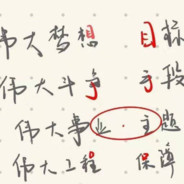 伟大梦想 目标
伟大斗争 手段
伟大事业·主题
伟大工程 保障